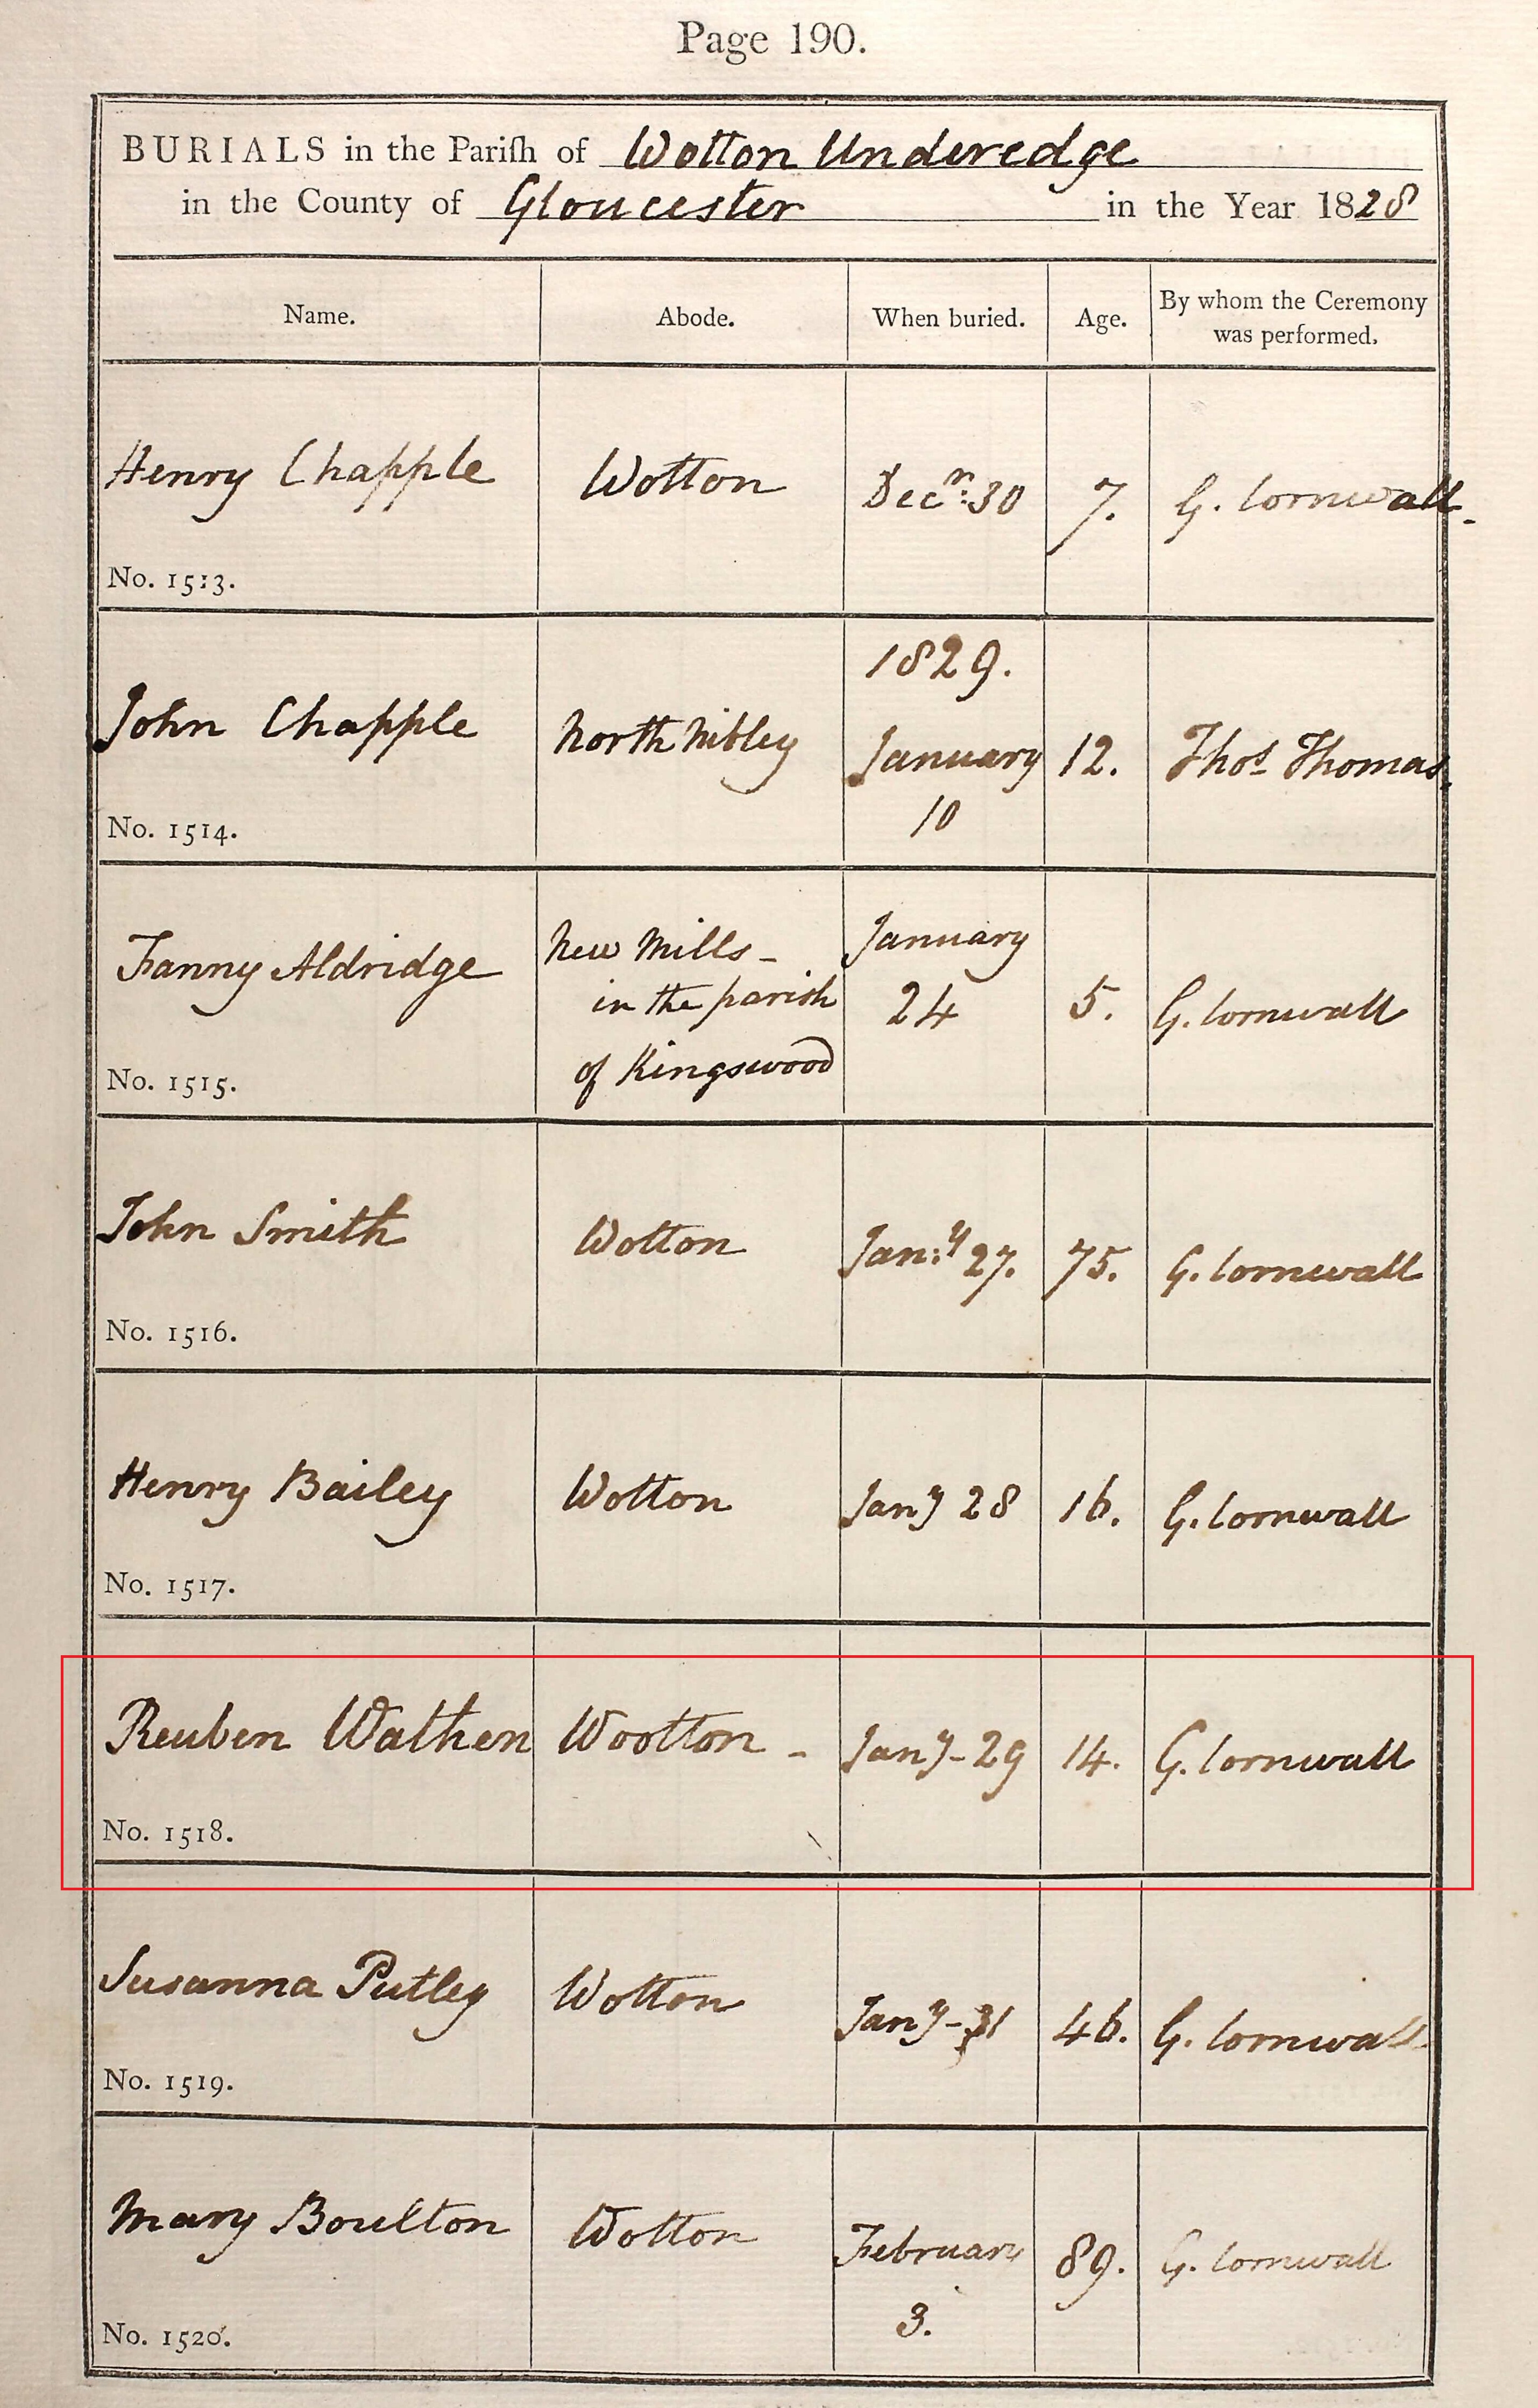 Page 190.
BURIALS in the Pariſh of Wotton Underedge
in the County of Gloucester in the Year 1828
Name. Abode. When buried. Age. By whom the Ceremony
was performed.
Henry Chapple Wotton Decr: 30 7. G. Cornwall.
No. 1513.
1829.
John Chapple North Nibley January 12. Thos Thomas
10
No. 1514.
New Mills - January
Fanny Aldridge in the parish 24 5. G. Cornwall
of Kingswood
No. 1515.
John Smith Wotton Jan:y 27. 75. G. Cornwall
No. 1516.
Henry Bailey Wotton Jany 28 16. G. Cornwall
No. 1517.
Reuben Wathen Wootton - Jany - 29 14. G. Cornwall
No. 1518.
Susanna Putley Wotton Jany - 31 46. G. Cornwall
No. 1519.
Mary Boulton Wotton February 89. G. Cornwall
3.
No. 1520.